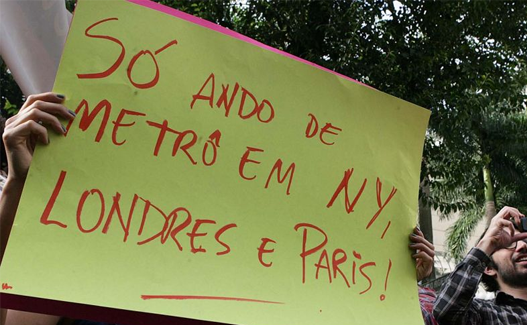 SÓ ANDO DE
METRÔ EM NY,
LONDRES E PARIS!